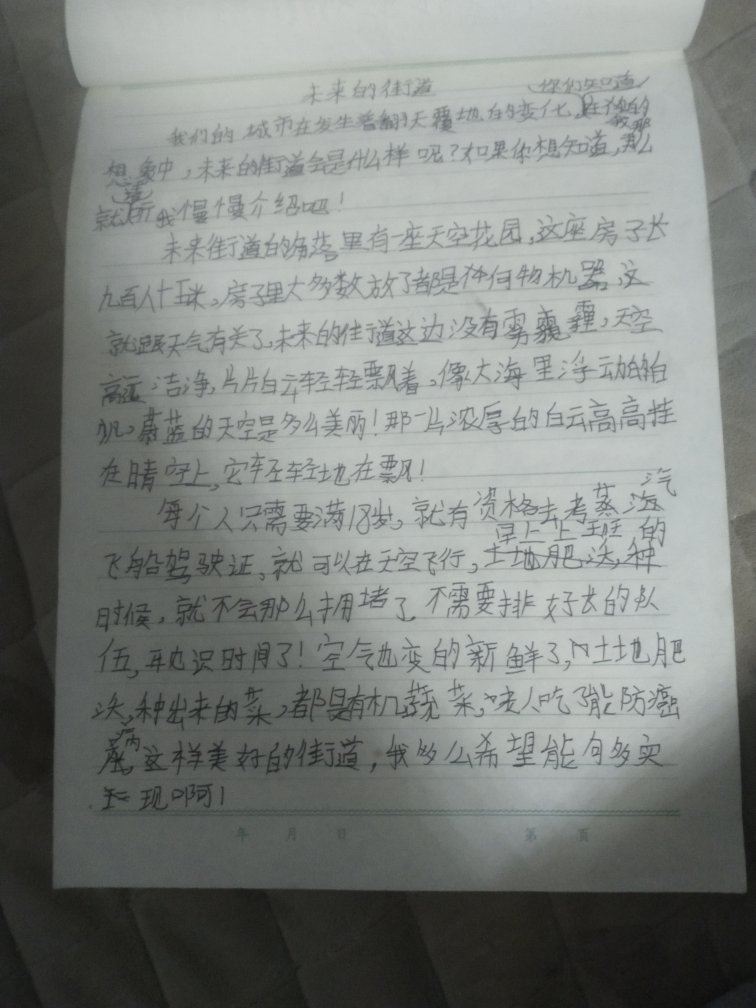 未来的街道
你们知道
我们的城市在发生着翻天覆地的变化,在我的
想象中,未来的街道会是什么样呢?如果你想知道,那么
就听我慢慢介绍吧!
未来街道的角落里有一座天空花园,这座房子长
九百八十五米,房子里大多数放了都是任何物机器,这
就跟天气有关了,未来的街道这边没有雾霾,天空
高远洁净,片片白云轻轻飘着,像大海里浮动的白
帆,蔚蓝的天空是多么美丽!那一片浓厚的白云高高挂
在晴空上,它轻轻地在飘!
每个人只需要满18岁,就有资格去考蒸汽
飞船驾驶证,就可以在天空飞行,早上上班的
时候,就不会那么拥堵了,不需要排好长的队
伍,耽识时间了!空气也变的新鲜了,土地肥
沃,种出来的菜,都是有机蔬菜,老人吃了能防癌
病,这样美好的街道,我多么希望能够
实现啊!
年 月 日 第 页